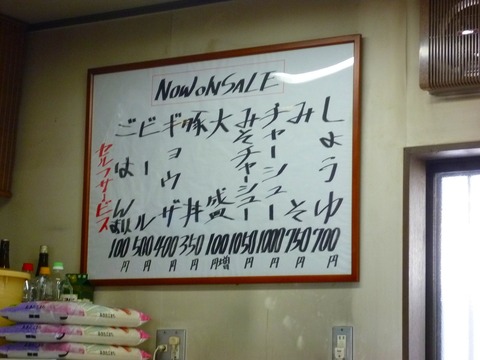 NOW ON SALE
しょうゆ 700円
みそ 750円
チャーシュー 1000円
みそチャーシュー 1050円
大盛 100円増
豚丼 350円
ギョウザ 400円
ビール 500円
ごはん 100円
セルフサービス